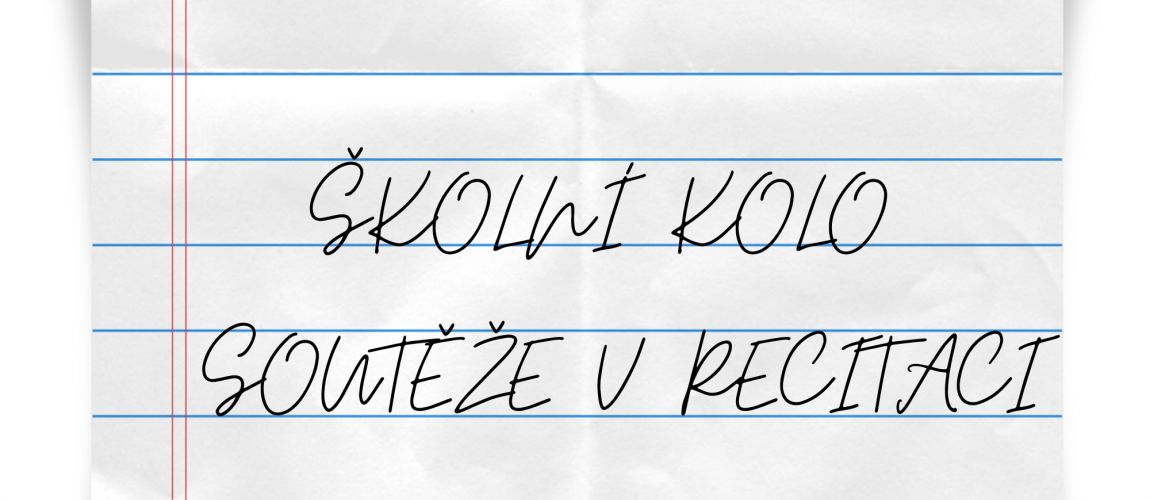 ŠKOLNÍ KOLO
SOUTĚŽE V RECITACI